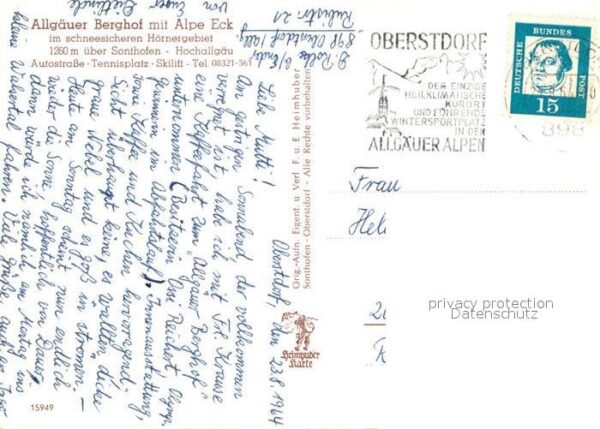 Allgäuer Berghof mit Alpe Eck
im schneesicheren Hörnergebiet
1260 m über Sonthofen - Hochallgäu
Autostraße · Tennisplatz · Skilift - Tel 08321-561
Oberstdorf, den 23.8.1964
Liebe Mutti!
Am gestrigen Sonnabend der vollkommen
verregnet ist, habe ich mit Frl. Krause
eine Kaffeefahrt zum „Allgäuer Berghof"
unternommen (Besitzerin Ossi Reichert, Olymp.
siegerin im Abfahrtslauf). Innenausstattung,
sowie Kaffee und Kuchen hervorragend.
Sicht überhaupt keine, es wallten dicke
graue Nebel und es goß in Strömen. -
Heute am Sonntag scheint nun endlich
wieder die Sonne, hoffentlich von Dauer,
dann würde ich nämlich am Montag ins
kleine Walsertal fahren. Viele Grüße
von Eurer
898 Oberstdorf
Orig.-Aufn. Eigent u Verl F. u E Heimhuber
Sonthofen - Oberstdorf - Alle Rechte vorbehalten
Heimhuber
Karte
15949
OBERSTDORF
DER EINZIGE
HEILKLIMATISCHE
KURORT
UND FÜHRENDE
WINTERSPORTPLATZ
IN DEN
ALLGÄUER ALPEN
DEUTSCHE BUNDESPOST
15
898
Frau
Hel
privacy protection
Datenschutz